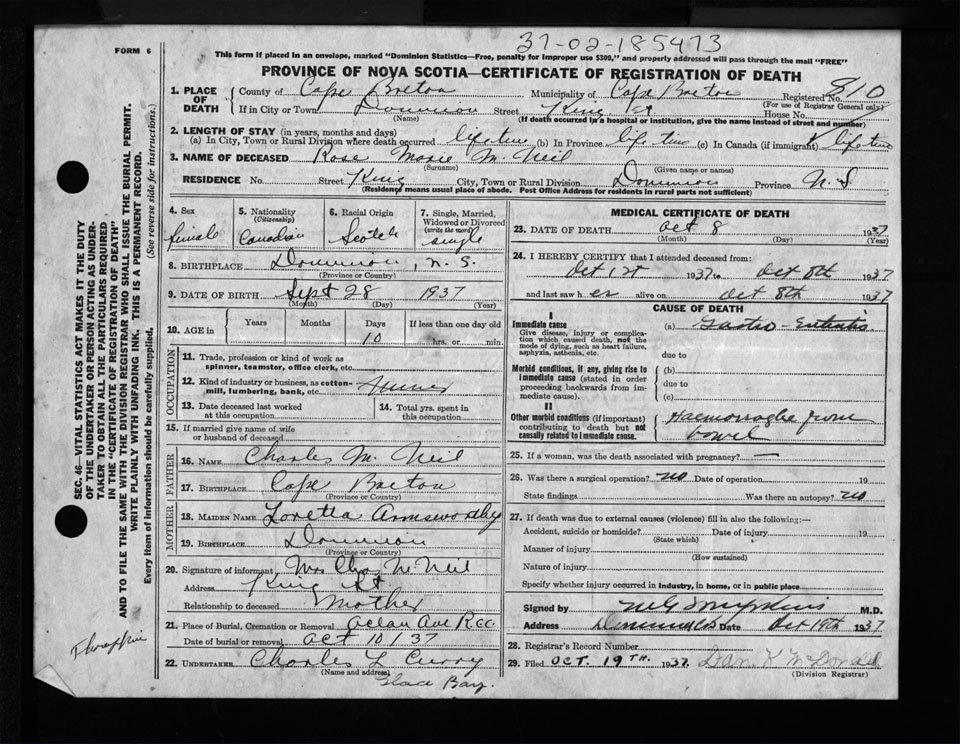 37-02-185473
FORM 6
This form if placed in an envelope, marked "Dominion Statistics—Free, penalty for improper use $300," and properly addressed will pass through the mail "FREE"
PROVINCE OF NOVA SCOTIA—CERTIFICATE OF REGISTRATION OF DEATH
1. PLACE OF DEATH
County of Cape Breton Municipality of Cape Breton Registered No. 810
(For use of Registrar General only)
If in City or Town Dominion Street King St House No.
(Name) (If death occurred in a hospital or institution, give the name instead of street and number)
2. LENGTH OF STAY (in years, months and days)
(a) In City, Town or Rural Division where death occurred life time (b) In Province life time (c) In Canada (if immigrant) life time
3. NAME OF DECEASED Rose Marie McNeil
(Surname) (Given name or names)
RESIDENCE No. Street King City, Town or Rural Division Dominion Province N.S.
(Residence means usual place of abode. Post Office Address for residents in rural parts not sufficient)
4. Sex female
5. Nationality (Citizenship) Canadian
6. Racial Origin Scotch
7. Single, Married, Widowed or Divorced (write the word) single
8. BIRTHPLACE Dominion, N.S.
(Province or Country)
9. DATE OF BIRTH Sept 28 1937
(Month) (Day) (Year)
10. AGE in Years Months Days 10 If less than one day old hrs. or min.
OCCUPATION
11. Trade, profession or kind of work as spinner, teamster, office clerk, etc.
12. Kind of industry or business, as cotton-mill, lumbering, bank, etc.
13. Date deceased last worked at this occupation
14. Total yrs. spent in this occupation
15. If married give name of wife or husband of deceased
FATHER
16. NAME Charles McNeil
17. BIRTHPLACE Cape Breton
(Province or Country)
MOTHER
18. MAIDEN NAME Loretta Armsworthy
19. BIRTHPLACE Dominion
(Province or Country)
20. Signature of informant Mrs Chas McNeil
Address King St
Relationship to deceased Mother
21. Place of Burial, Cremation or Removal Ocean Ave R.C.C.
Date of burial or removal Oct 10/37
22. UNDERTAKER Charles L Curry
(Name and address)
Glace Bay.
MEDICAL CERTIFICATE OF DEATH
23. DATE OF DEATH Oct 8 1937
(Month) (Day) (Year)
24. I HEREBY CERTIFY that I attended deceased from:
Oct 1st 1937 to Oct 8th 1937
and last saw her alive on Oct 8th 1937
CAUSE OF DEATH
I
Immediate cause
Give disease, injury or complication which caused death, not the mode of dying, such as heart failure, asphyxia, asthenia, etc.
(a) Gastro-Enteritis
due to
Morbid conditions, if any, giving rise to immediate cause (stated in order proceeding backwards from immediate cause)
(b)
due to
(c)
II
Other morbid conditions (if important) contributing to death but not causally related to immediate cause.
Haemorraghe from bowel
25. If a woman, was the death associated with pregnancy? —
26. Was there a surgical operation? no Date of operation 19
State findings Was there an autopsy? no
27. If death was due to external causes (violence) fill in also the following:—
Accident, suicide or homicide? Date of injury 19
(State which)
Manner of injury
(How sustained)
Nature of injury
Specify whether injury occurred in industry, in home, or in public place
Signed by M.D.
Address Dominion C.B. Date Oct 19th 1937
28. Registrar's Record Number
29. Filed OCT. 19TH. 1937 Dan K McDonald
(Division Registrar)
SEC. 46—VITAL STATISTICS ACT MAKES IT THE DUTY
OF THE UNDERTAKER OR PERSON ACTING AS UNDER-
TAKER TO OBTAIN ALL THE PARTICULARS REQUIRED
IN THE "CERTIFICATE OF REGISTRATION OF DEATH"
AND TO FILE THE SAME WITH THE DIVISION REGISTRAR WHO SHALL ISSUE THE BURIAL PERMIT.
WRITE PLAINLY WITH UNFADING INK. THIS IS A PERMANENT RECORD.
Every item of information should be carefully supplied. (See reverse side for instructions.)